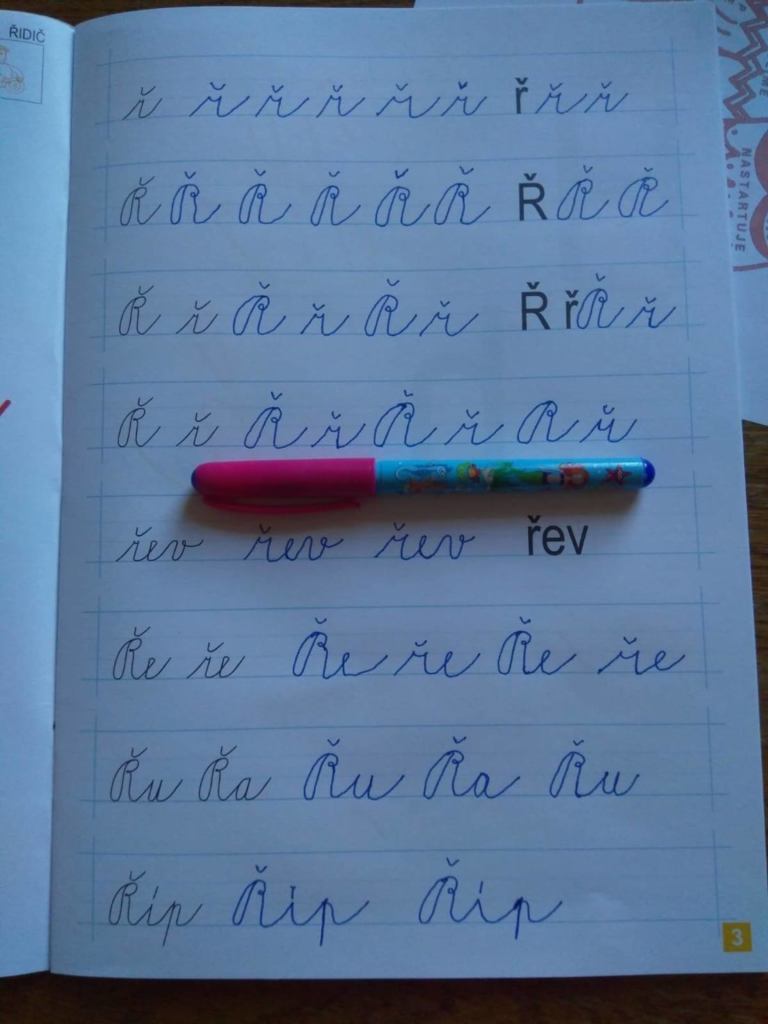 ŘIDIČ
ř ř ř ř ř ř ř ř ř
Ř Ř Ř Ř Ř Ř Ř Ř Ř
Ř ř Ř ř Ř ř Ř ř Ř ř
Ř ř Ř ř Ř ř R ř
řev řev řev řev
Ře ře Ře ře Ře ře
Řu Řa Řu Řa Řu
Říp Říp Říp
3
NASTARTUJE